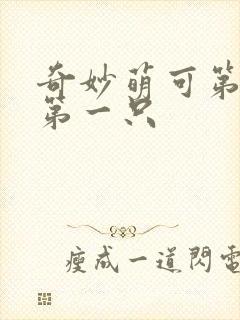 奇妙萌可第
第一只
瘦成一道閃電